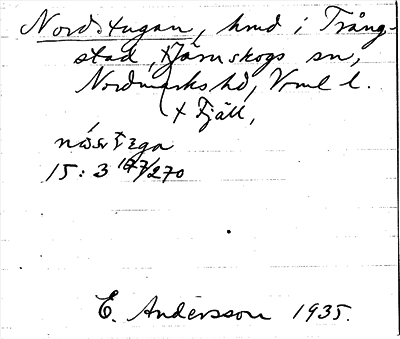 Nordstugan, hmd i Trång-
stad, Järnskogs sn,
Nordmarks hd, Vrml l.
+ Fjäll,
15: 3 177/270
E. Andersson 1935.